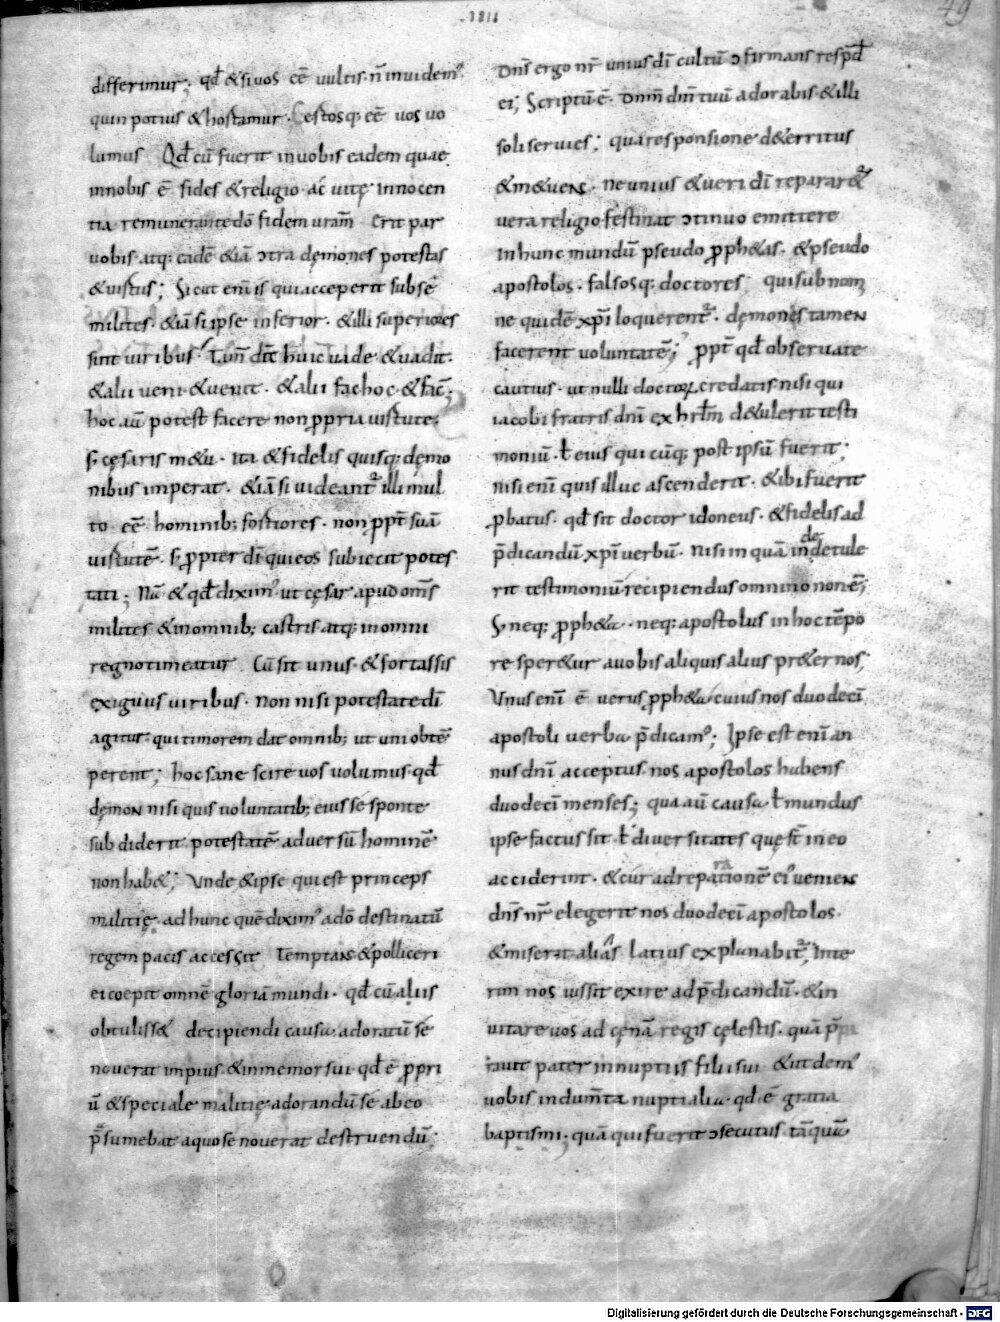 49
differimur; qđ & si vos eē vultis. n̄ inuidem᾽
quin potius & hortamur. Certos q: eē uos uo
lumus Qđ cū fuerit in uobis eadem quae
in nobis ē fides & religio. ac̄ uitę innocen
tia remunerante dō fidem uram̄ Erit par
uobis atq: eadē & iā ɔtra dęmones potestas
& uirtus; Sicut eni is qui acceperit sub se
milites. & iā si ipse inferior. & illi superiores
sint uiribus Tun̄ dic̄ huic uade & uadit.
& alii ueni. & uenit. & alii fac hoc. & fac̄;
hoc aū potest facere non ꝓpria uirtute.
s; cęsaris m&u. ita & fidelis quisq: dęmo
nibus imperat. & iā si uideant᷑ illi mul
to eē hominib; fortiores. non ꝓpt̄ suā
uirtutē. s; ꝓpter dī qui eos subiecit potes
tati; Nā & qđ dixim᾽ ut cęsar apud om̄s
milites & in omnib; castris atq: in omni
regno timeatur Cū sit unus. & fortassis
exiguus uiribus. non nisi potestate dī
agitur. qui timorem dat omnib; ut uni obtē
perent; hoc sane scire uos uolumus. qđ
dęmon nisi quis uoluntatib; eius se sponte
subdiderit potestatē aduersū hominē
non hab&; Vnde & ipse qui est princeps
militię. ad hunc quē dixim᾽ adō destinatū
regem pacis accessit Temptans & polliceri
ei coepit omnē gloriā mundi. qđ cū aliis
obtuliss& decipiendi causa. adoratū se
nouerat impius & inmemor sui. qđ ē ꝓpri
ū & speciale malitię adorandū se ab eo
p̄sumebat a quo se nouerat destruendū;
Dn̄s ergo nr̄ unius dī cultū ɔfirmans respđ
ei; Scriptū ē. Dnm̄ dm̄ tuū adorabis. & illi
soli seruies; qua responsione d&erritus
& m&uens. ne unius & ueri dī reparar&᷑
uera religio festinat ɔtinuo emittere
in hunc mundū pseudo ꝓph&as. & pseudo
apostolos. falsosq: doctores; qui sub nom̄
ne quidē xp̄i loquerent᷑. dęmonis tamen
facerent uoluntatē; ꝓpt̄ qđ obseruate
cautius. ut nulli doctoꝝ credatis nisi qui
iacobi fratris dn̄i ex hrl̄m d&ulerit testi
moniū. ł eius qui cūq: post ipsū fuerit;
nisi eni quis illuc ascenderit. & ibi fuerit
ꝓbatus. qđ sit doctor idoneus. & fidelis ad
p̄dicandū xp̄i uerbū. nisi inquā inde detule
rit testimoniū recipiendus omnino non ē;
S; neq: ꝓph&a. neq: apostolus in hoc tēpo
re sper&ur a uobis aliquis alius pr&er nos;
Vnus enī ē uerus ꝓph&a cuius nos duodecī
apostoli uerba p̄dicam᾽; Ipse est enī an
nus dn̄i acceptus. nos apostolos habens
duodecī menses; qua aū causa ł mundus
ipse factus sit. ł diuersitates quę sr̄ in eo
acciderint. & cur ad reparationē ei᾽ ueniens
dn̄s nr̄ elegerit nos duodecī apostolos.
& miserit alias latius explanabit᷑, Inte
rim nos iussit exire ad p̄dicandū. & in
uitare uos ad cęnā regis cęlestis. quā p̄pa
rauit pater in nuptiis filii sui & ut dem᾽
uobis indum̄ta nuptialia. qđ ē gratia
baptismi; quā qui fuerit ɔsecutus. tā quā
Digitalisierung gefördert durch die Deutsche Forschungsgemeinschaft - DFG